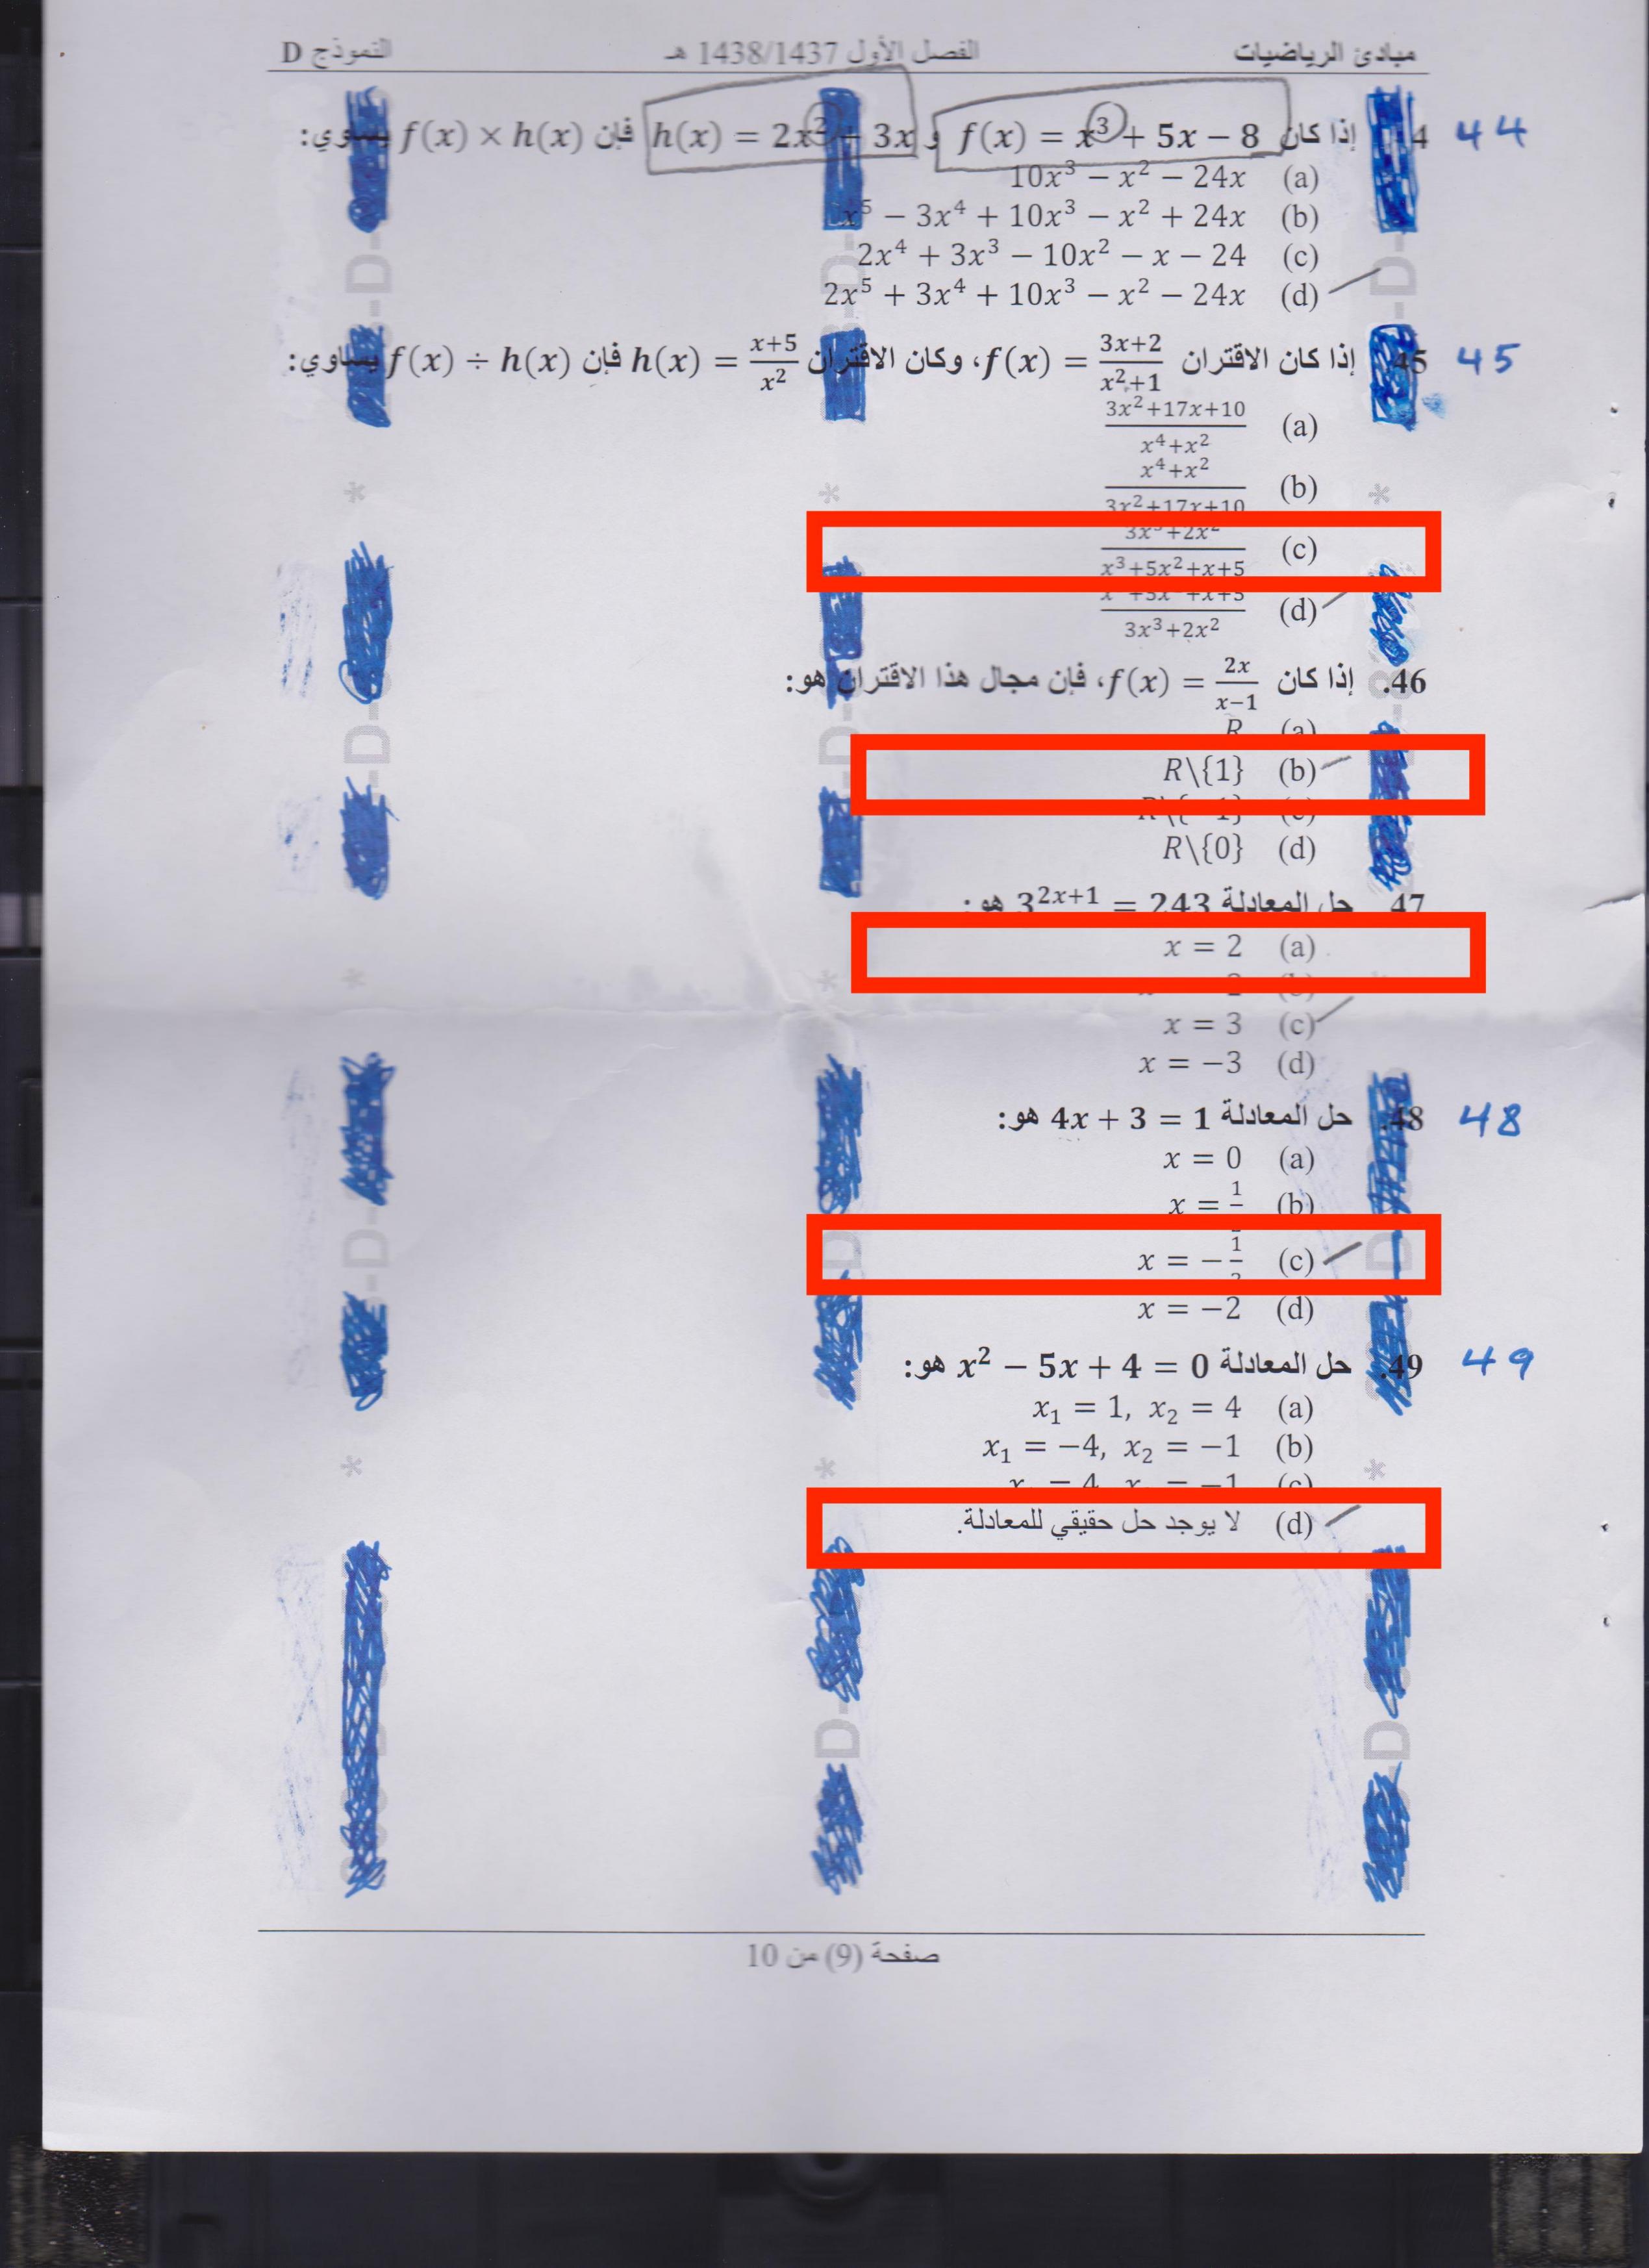 مبادئ الرياضيات الفصل الأول 1438/1437 هـ النموذج D
44 إذا كان f(x) = x³ + 5x − 8 و h(x) = 2x² 3x فإن f(x) × h(x) يساوي:
(a) 10x³ − x² − 24x
(b) x⁵ − 3x⁴ + 10x³ − x² + 24x
(c) 2x⁴ + 3x³ − 10x² − x − 24
(d) 2x⁵ + 3x⁴ + 10x³ − x² − 24x
45 45. إذا كان الاقتران f(x) = (3x+2)/(x²+1)، وكان الاقتران h(x) = (x+5)/x² فإن f(x) ÷ h(x) يساوي:
(a) (3x²+17x+10)/(x⁴+x²)
(b) (x⁴+x²)/(3x²+17x+10)
(c) (3x³+2x²)/(x³+5x²+x+5)
(d) (x³+5x²+x+5)/(3x³+2x²)
46. إذا كان f(x) = 2x/(x−1)، فإن مجال هذا الاقتران هو:
(a) R
(b) R\{1}
(c) R\{−1}
(d) R\{0}
47 حل المعادلة 3²ˣ⁺¹ = 243 هو:
(a) x = 2
(b)
(c) x = 3
(d) x = −3
48 48. حل المعادلة 4x + 3 = 1 هو:
(a) x = 0
(b) x = 1
(c) x = −1/2
(d) x = −2
49 49. حل المعادلة x² − 5x + 4 = 0 هو:
(a) x₁ = 1, x₂ = 4
(b) x₁ = −4, x₂ = −1
(c) x₁ = 4, x₂ = −1
(d) لا يوجد حل حقيقي للمعادلة.
صفحة (9) من 10